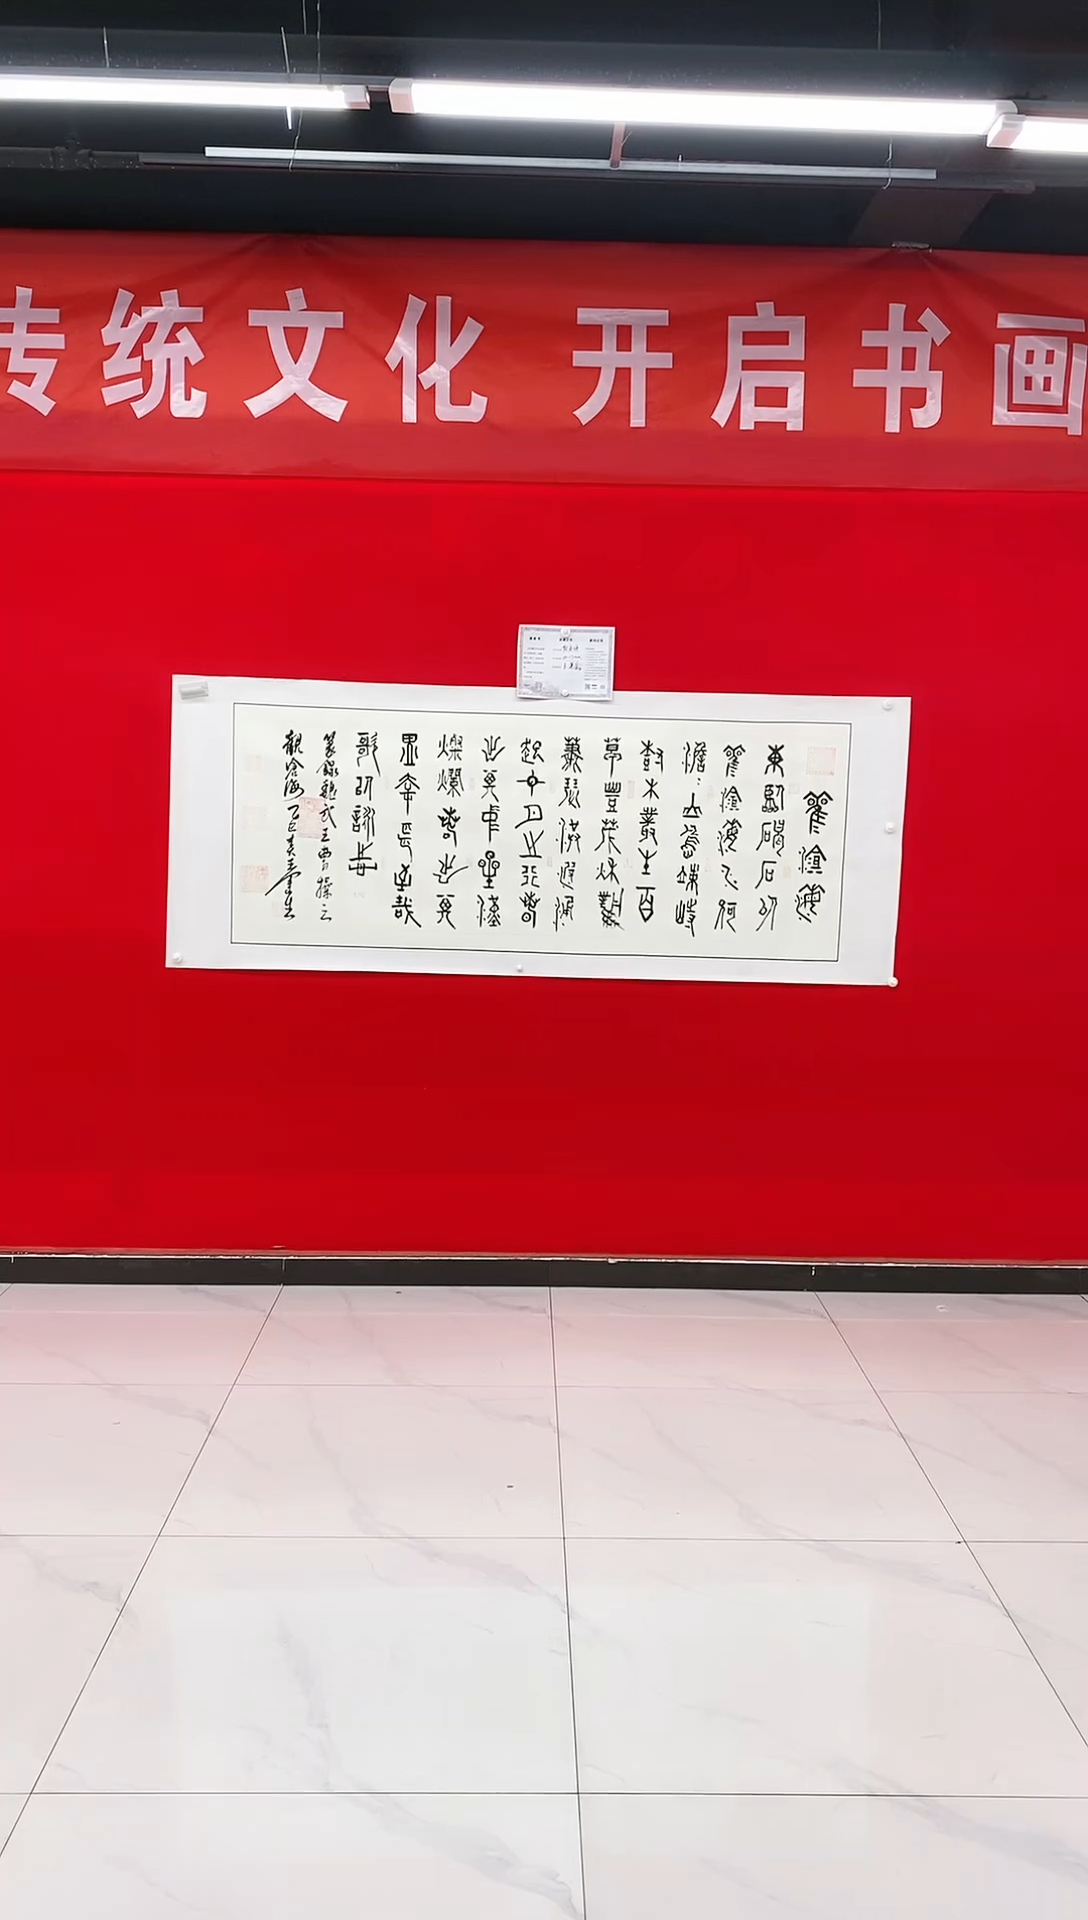 传统文化 开启书画
觀滄海
東臨碣石以
觀滄海水何
澹〻山島竦峙
樹木叢生百
草豐茂秋風
蕭瑟洪波涌
起日月之行若
出其中星漢
燦爛若出其
里幸甚至哉
歌以詠志
篆錄魏武王曹操之
觀滄海乙巳